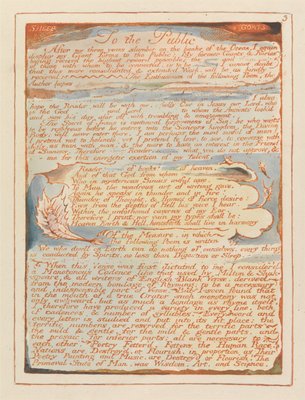 SHEEP GOATS
3
To the Public
After my three years slumber on the banks of the Ocean, I again
display my Giant forms to the Public: My former Giants & Fairies
having reciev'd the highest reward possible: the and
of those with whom to be connected, is to be I cannot doubt
that this more consolidated & extended Work, will be as kindly
recieved The Enthusiasm of the following Poem, the
Author hopes
I also
hope the Reader will be with me, wholly One in Jesus our Lord, who
is the God and Lord to whom the Ancients look'd
and saw his day afar off, with trembling & amazement.
The Spirit of Jesus is continual forgiveness of Sin: he who waits
to be righteous before he enters into the Saviours kingdom, the Divine
Body; will never enter there. I am perhaps the most sinful of men!
I pretend not to holiness! yet I pretend to love, to see, to converse with
daily, as man with man, & the more to have an interest in the Friend
of Sinners. Therefore Reader, what you do not approve, &
me for this energetic exertion of my talent.
Reader! of books! of heaven,
And of that God from whom
Who in mysterious Sinais awful cave
To Man the wondrous art of writing gave,
Again he speaks in thunder and in fire!
Thunder of Thought, & flames of fierce desire:
Even from the depths of Hell his voice I hear,
Within the unfathomd caverns of my Ear.
Therefore I print; nor vain my types shall be:
Heaven, Earth & Hell, henceforth shall live in harmony
Of the Measure, in which
the following Poem is written
We who dwell on Earth can do nothing of ourselves, every thing
is conducted by Spirits, no less than Digestion or Sleep.
When this Verse was first dictated to me I consider'd
a Monotonous Cadence like that used by Milton & Shak-
speare & all writers of English Blank Verse, derived
from the modern bondage of Rhyming; to be a necessary
and indispensible part of Verse. But I soon found that
in the mouth of a true Orator such monotony was not
only awkward, but as much a bondage as rhyme itself. I
therefore have produced a variety in every line, both
of cadences & number of syllables. Every word and
every letter is studied and put into its fit place: the
terrific numbers are reserved for the terrific parts—
the mild & gentle, for the mild & gentle parts, and
the prosaic, for inferior parts: all are necessary to
each other. Poetry Fetter'd, Fetters the Human Race!
Nations are Destroy'd, or Flourish, in proportion as Their
Poetry Painting and Music, are Destroy'd or Flourish! The
Primeval State of Man, was Wisdom, Art, and Science.